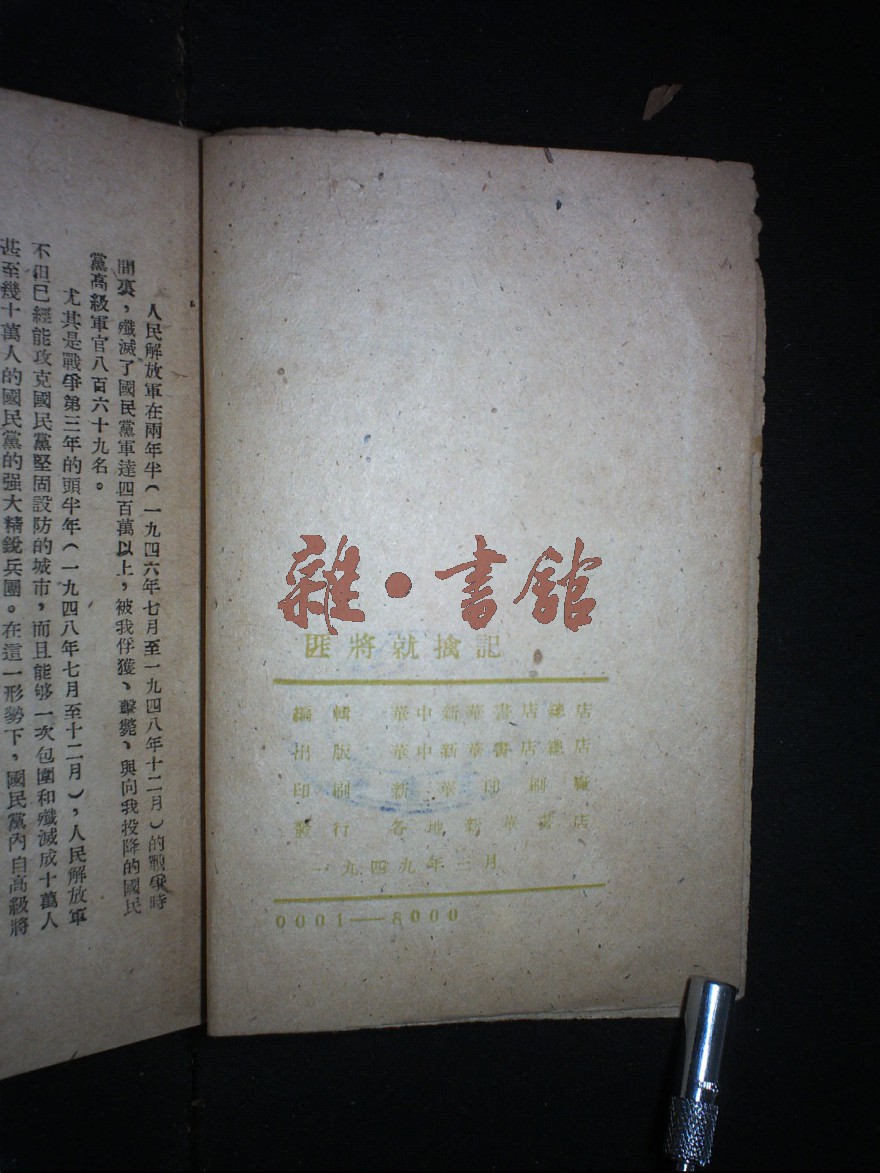 人民解放軍在兩年半(一九四六年七月至一九四八年十二月)的戰爭時
間裏，殲滅了國民黨軍達四百萬以上，被我俘獲、擊斃、與向我投降的國民
黨高級軍官八百六十九名。
尤其是戰爭第三年的頭半年(一九四八年七月至十二月)，人民解放軍
不但已經能攻克國民黨堅固設防的城市，而且能够一次包圍和殲滅成十萬人
甚至幾十萬人的國民黨的强大精銳兵團。在這一形勢下，國民黨內自高級將
雜·書館
匪將就擒記
編輯 華中新華書店總店
出版 華中新華書店總店
印刷 新華印刷廠
發行 各地新華書店
一九四九年三月
0001—8000